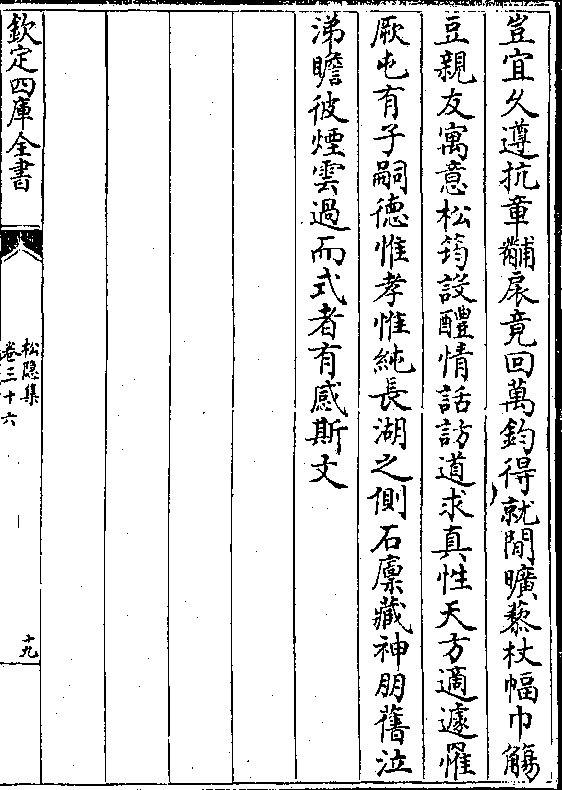 豈宜久遵抗章黼扆竟回萬鈞得就閒曠藜杖幅巾觴
豆親友寓意松筠設醴情話訪道求真性天方適遽罹
厥屯有子嗣德惟孝惟純長湖之側石廪藏神朋舊泣
涕瞻彼煙雲過而式者有感斯文
欽定四庫全書
松隠集
卷三十六
十九